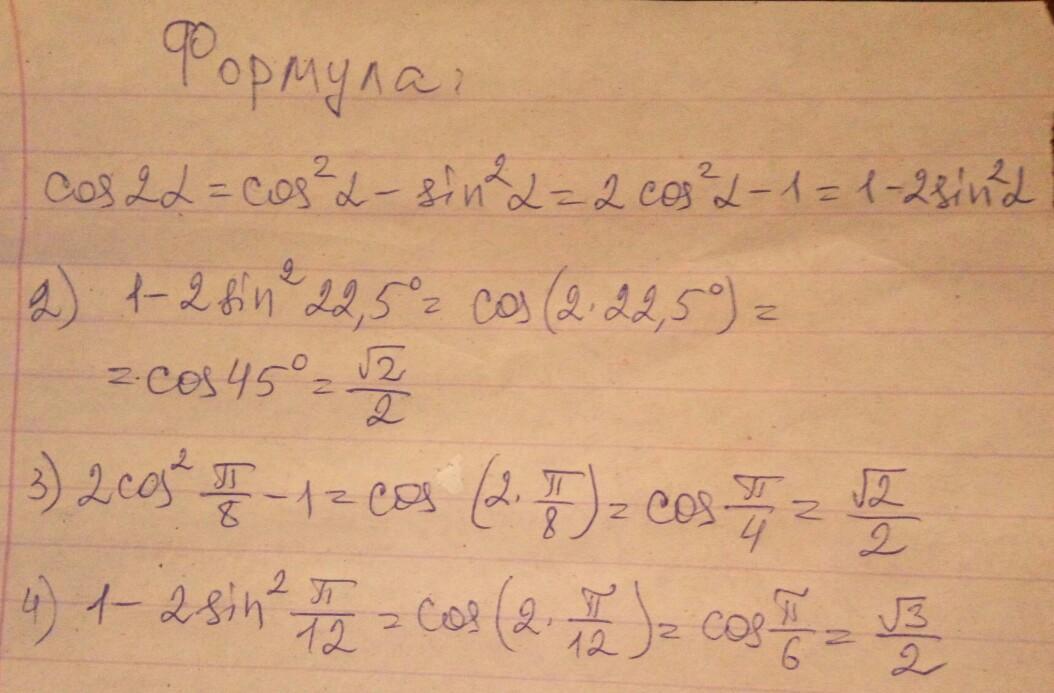 Формула:
cos2α = cos²α − sin²α = 2cos²α − 1 = 1 − 2sin²α
2) 1 − 2sin² 22,5° = cos(2·22,5°) =
= cos45° = √2/2
3) 2cos² π/8 − 1 = cos (2·π/8) = cos π/4 = √2/2
4) 1 − 2sin² π/12 = cos(2·π/12) = cos π/6 = √3/2